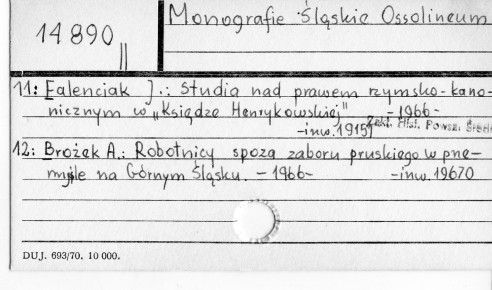 14890
II
Monografie Śląskie Ossolineum
11: Falenciak J.: Studia nad prawem rzymsko-kano-
nicznym w „Księdze Henrykowskiej" -1966-
-inw. 19157 Zakł. Hist. Powsz. Średn
12: Brożek A.: Robotnicy spoza zaboru pruskiego w prze-
myśle na Górnym Śląsku. -1966- -inw. 19670
DUJ. 693/70. 10 000.